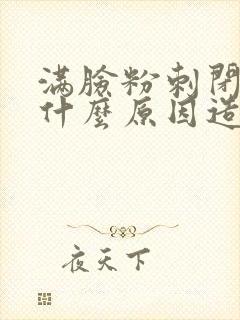 滿臉粉刺閉
什麼原因造
夜天下